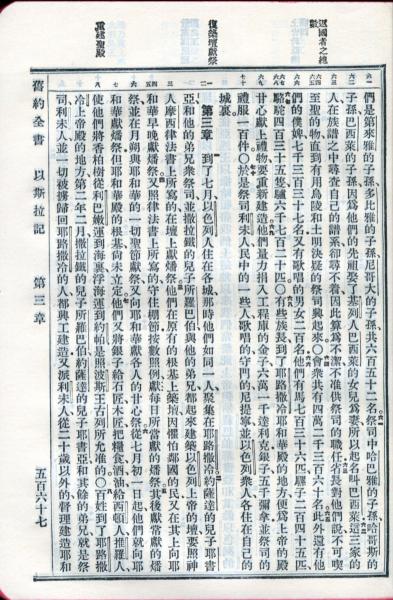 返國者之總數
復築壇獻祭
重建聖殿
們是第來雅的子孫多比雅的子孫尼哥大的子孫共六百五十二名祭司中哈巴雅的子孫哈哥斯的
子孫巴西萊的子孫因爲他們的先祖娶了基列人巴西萊的女兒爲妻所以起名叫巴西萊這三家的
人在族譜之中尋查自己的譜系卻尋不着因此算爲不潔不准供祭司的職任省長對他們說不可喫
至聖的物直到有用烏陵和土明決疑的祭司興起來○會衆共有四萬二千三百六十名此外還有他
們的僕婢七千三百三十七名又有歌唱的男女二百名他們有馬七百三十六匹騾子二百四十五匹
駱駝四百三十五隻驢六千七百二十匹○有些族長到了耶路撒冷耶和華殿的地方便爲上帝的殿
甘心獻上禮物要重新建造他們量力捐入工程庫的金子六萬一千達利克銀子五千彌拿並祭司的
禮服一百件○於是祭司利未人民中的一些人歌唱的守門的尼提寧並以色列衆人各住在自己的
城裏
第三章 到了七月以色列人住在各城那時他們如同一人聚集在耶路撒冷約薩達的兒子耶書
亞和他的弟兄衆祭司並撒拉鐵的兒子所羅巴伯與他的弟兄都起來建築以色列上帝的壇要照神
人摩西律法書上所寫的在壇上獻燔祭他們在原有的根基上築壇因懼怕鄰國的民又在其上向耶
和華早晚獻燔祭又照律法書上所寫的守住棚節按數照例獻每日所當獻的燔祭其後常獻的燔
祭並在月朔與耶和華的一切聖節獻祭又向耶和華獻各人的甘心祭從七月初一日起他們就向耶
和華獻燔祭但耶和華殿的根基尚未立定他們又將銀子給石匠木匠把糧食酒油給西頓人推羅人
使他們將香柏樹從利巴嫩運到海裏浮海運到約帕是照波斯王古列所允准的○百姓到了耶路撒
冷上帝殿的地方第二年二月撒拉鐵的兒子所羅巴伯約薩達的兒子耶書亞和其餘的弟兄就是祭
司利未人並一切被擄歸回耶路撒冷的人都興工建造又派利未人從二十歲以外的督理建造耶和
舊約全書 以斯拉記 第三章 五百六十七